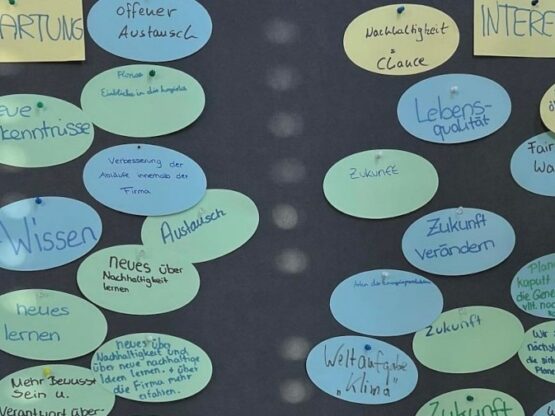 ARTUNG
offener
Austausch
Einblicke in die
eue
kenntnisse
Verbesserung der
Abläufe innerhalb der
Firma
Wissen
Austausch
neues über
Nachhaltigkeit
lernen
neues
lernen
neues über
Nachhaltigkeit und
über neue nachhaltige
Ideen lernen. + über
die Firma mehr
erfahren.
Mehr Bewusst
Sein u.
Verantwort über-
Nachhaltigkeit
=
Chance
INTERE
Lebens-
qualität
Fair
Wa
Zukunft
Zukunft
verändern
Plane
kaputt
die Gene
vllt. noc
Zukunft
Wir
nächs
die
Plane
Weltaufgabe
"Klima"
Zukunft